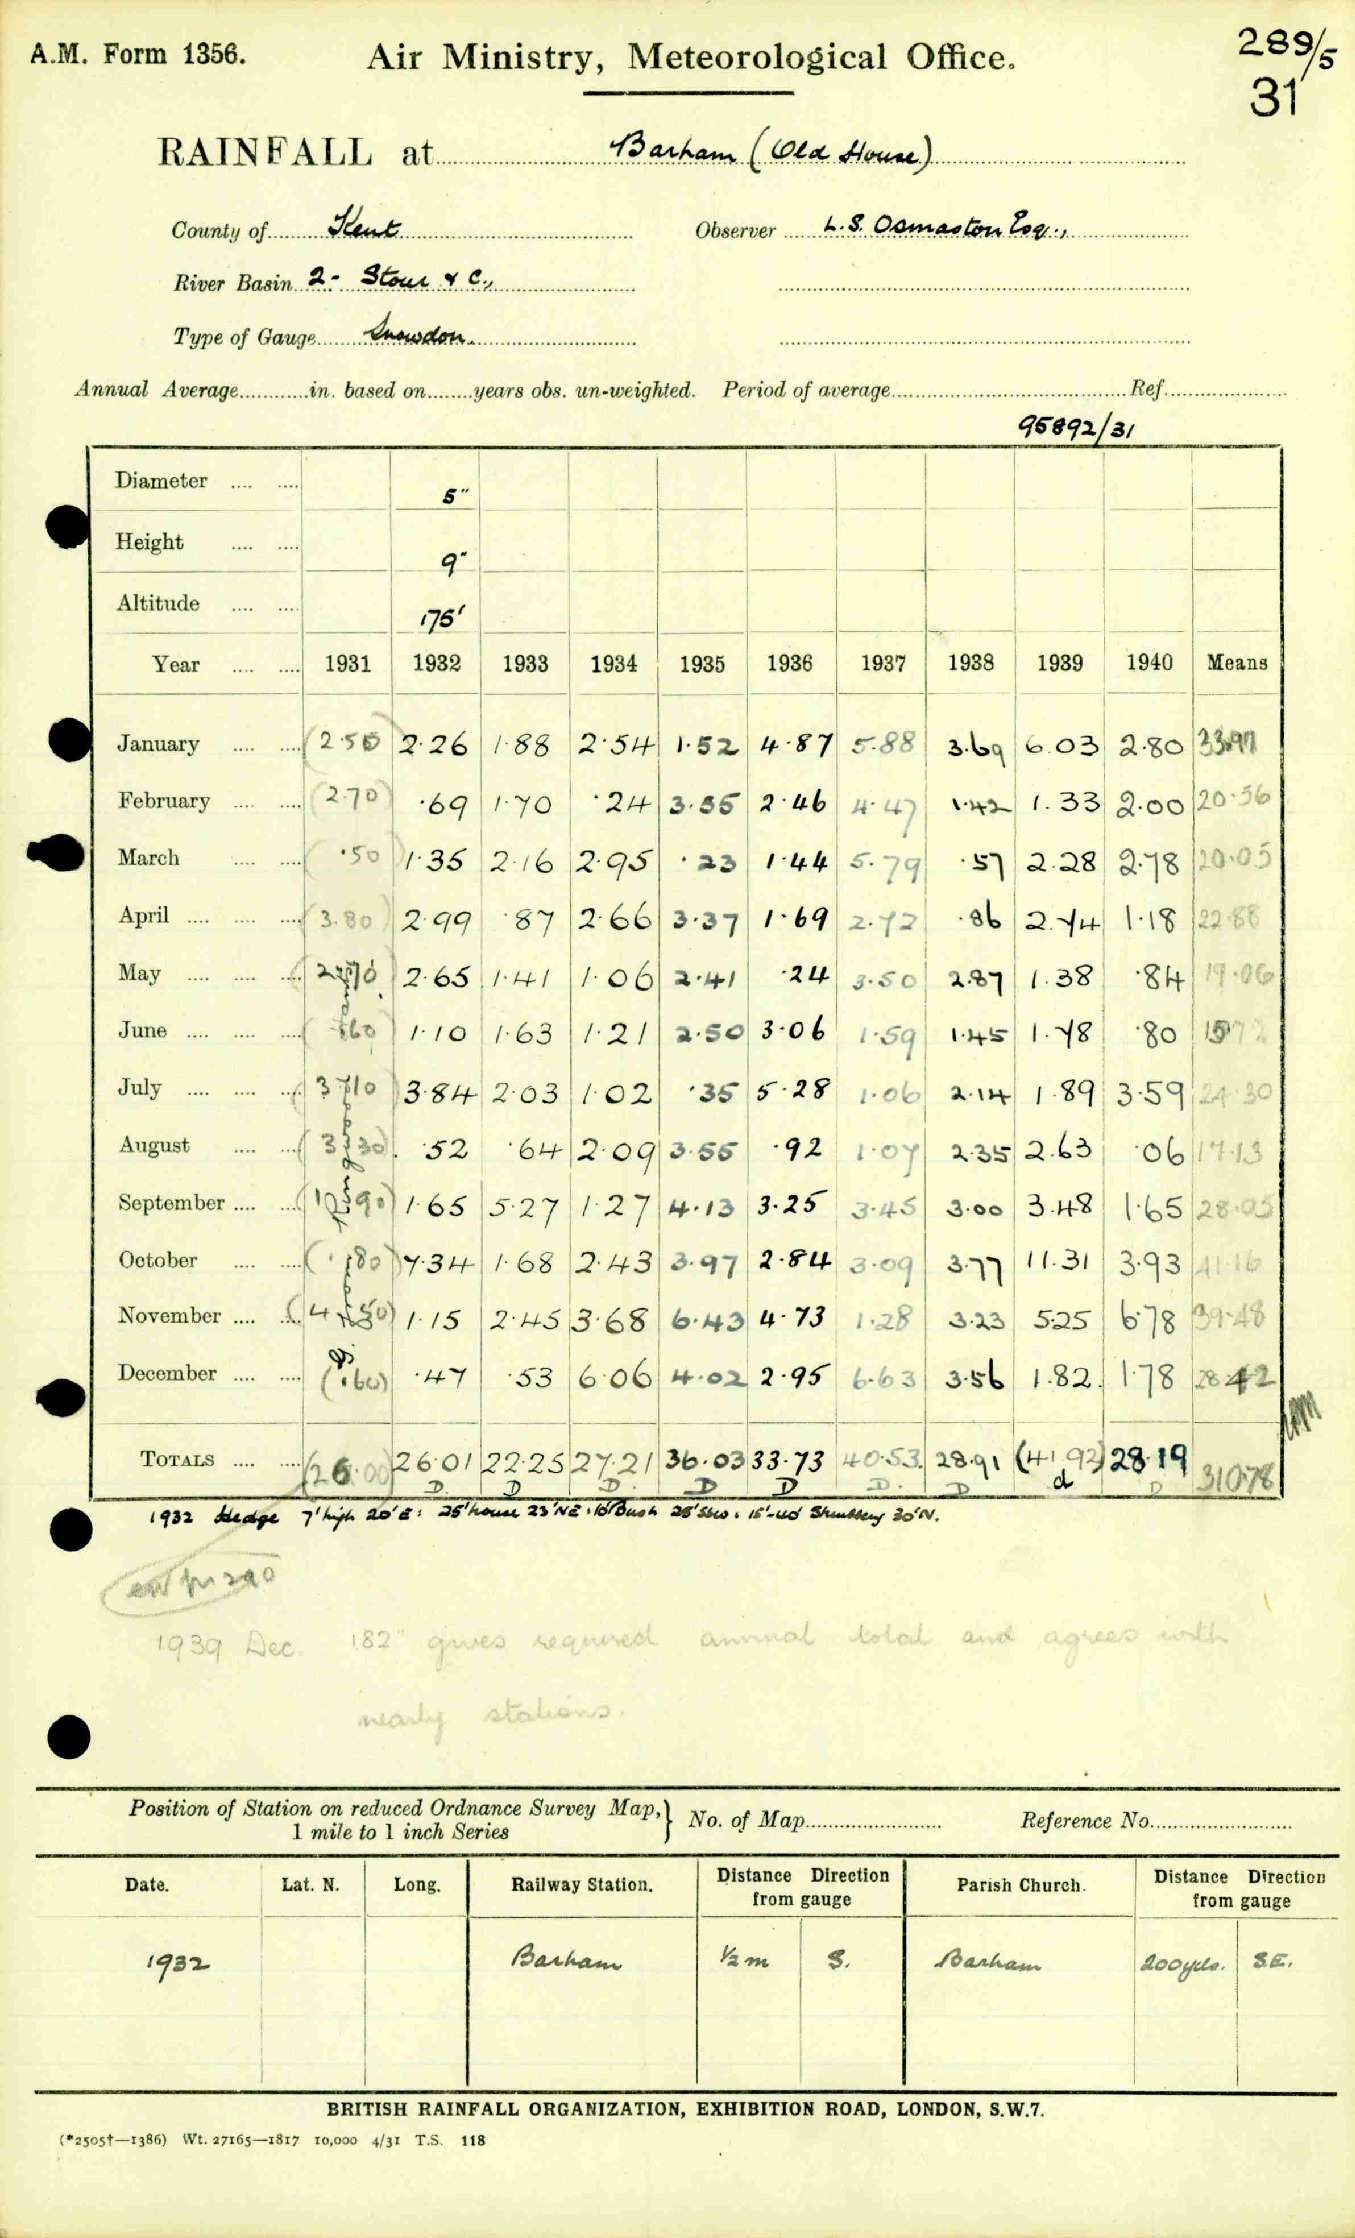 A.M. Form 1356. Air Ministry, Meteorological Office. 289/5
31
RAINFALL at Barham (Old House)
County of Kent Observer L. S. Osmaston Esq.,
River Basin 2- Stour & C.,
Type of Gauge Snowdon.
Annual Average in. based on years obs. un-weighted. Period of average Ref.
95892/31
Diameter 5"
Height 9"
Altitude 175'
Year 1931 1932 1933 1934 1935 1936 1937 1938 1939 1940 Means
January (2.50) 2.26 1.88 2.54 1.52 4.87 5.88 3.69 6.03 2.80 33.97
February (2.70) .69 1.70 .24 3.55 2.46 4.47 1.42 1.33 2.00 20.56
March (.50) 1.35 2.16 2.95 .23 1.44 5.79 .57 2.28 2.78 20.05
April (3.80) 2.99 .87 2.66 3.37 1.69 2.72 .86 2.74 1.18 22.88
May (2.70) 2.65 1.41 1.06 2.41 .24 3.50 2.87 1.38 .84 19.06
June (.60) 1.10 1.63 1.21 2.50 3.06 1.59 1.45 1.78 .80 15.72
July (3.10) 3.84 2.03 1.02 .35 5.28 1.06 2.14 1.89 3.59 24.30
August (3.30) .52 .64 2.09 3.55 .92 1.07 2.35 2.63 .06 17.13
September (1.90) 1.65 5.27 1.27 4.13 3.25 3.45 3.00 3.48 1.65 28.05
October (.80) 7.34 1.68 2.43 3.97 2.84 3.09 3.77 11.31 3.93 41.16
November (4.50) 1.15 2.45 3.68 6.43 4.73 1.28 3.23 5.25 6.78 39.48
December (.60) .47 .53 6.06 4.02 2.95 6.63 3.56 1.82 1.78 28.42
TOTALS (26.00) 26.01 22.25 27.21 36.03 33.73 40.53 28.91 (41.92) 28.19 310.78
D D D D D D. D d D
1932 Hedge 7' high 20'E: 25' house 23'NE: 10' Bush 25'SSW: 15'-40' Shrubbery 30'N.
1939 Dec 1.82" gives required annual total and agrees with
nearby stations.
Position of Station on reduced Ordnance Survey Map, 1 mile to 1 inch Series } No. of Map Reference No.
Date. Lat. N. Long. Railway Station. Distance Direction from gauge Parish Church. Distance Direction from gauge
1932 Barham ½ m S. Barham 200 yds. S.E.
BRITISH RAINFALL ORGANIZATION, EXHIBITION ROAD, LONDON, S.W.7.
(*2505†—1386) Wt. 27165—1817 10,000 4/31 T.S. 118